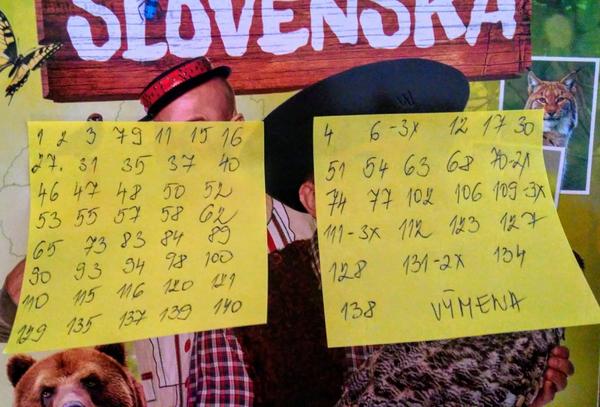 SLOVENSKA
1 2 3 79 11 15 16
27. 31 35 37 40
46 47 48 50 52
53 55 57 58 62
65 73 83 84 89
90 93 94 98 100
110 115 116 120 121
129 135 137 139 140
4 6-3x 12 17 30
51 54 63 68 70-2x
74 77 102 106 109-3x
111-3x 112 123 127
128 131-2x 134
138 VÝMENA